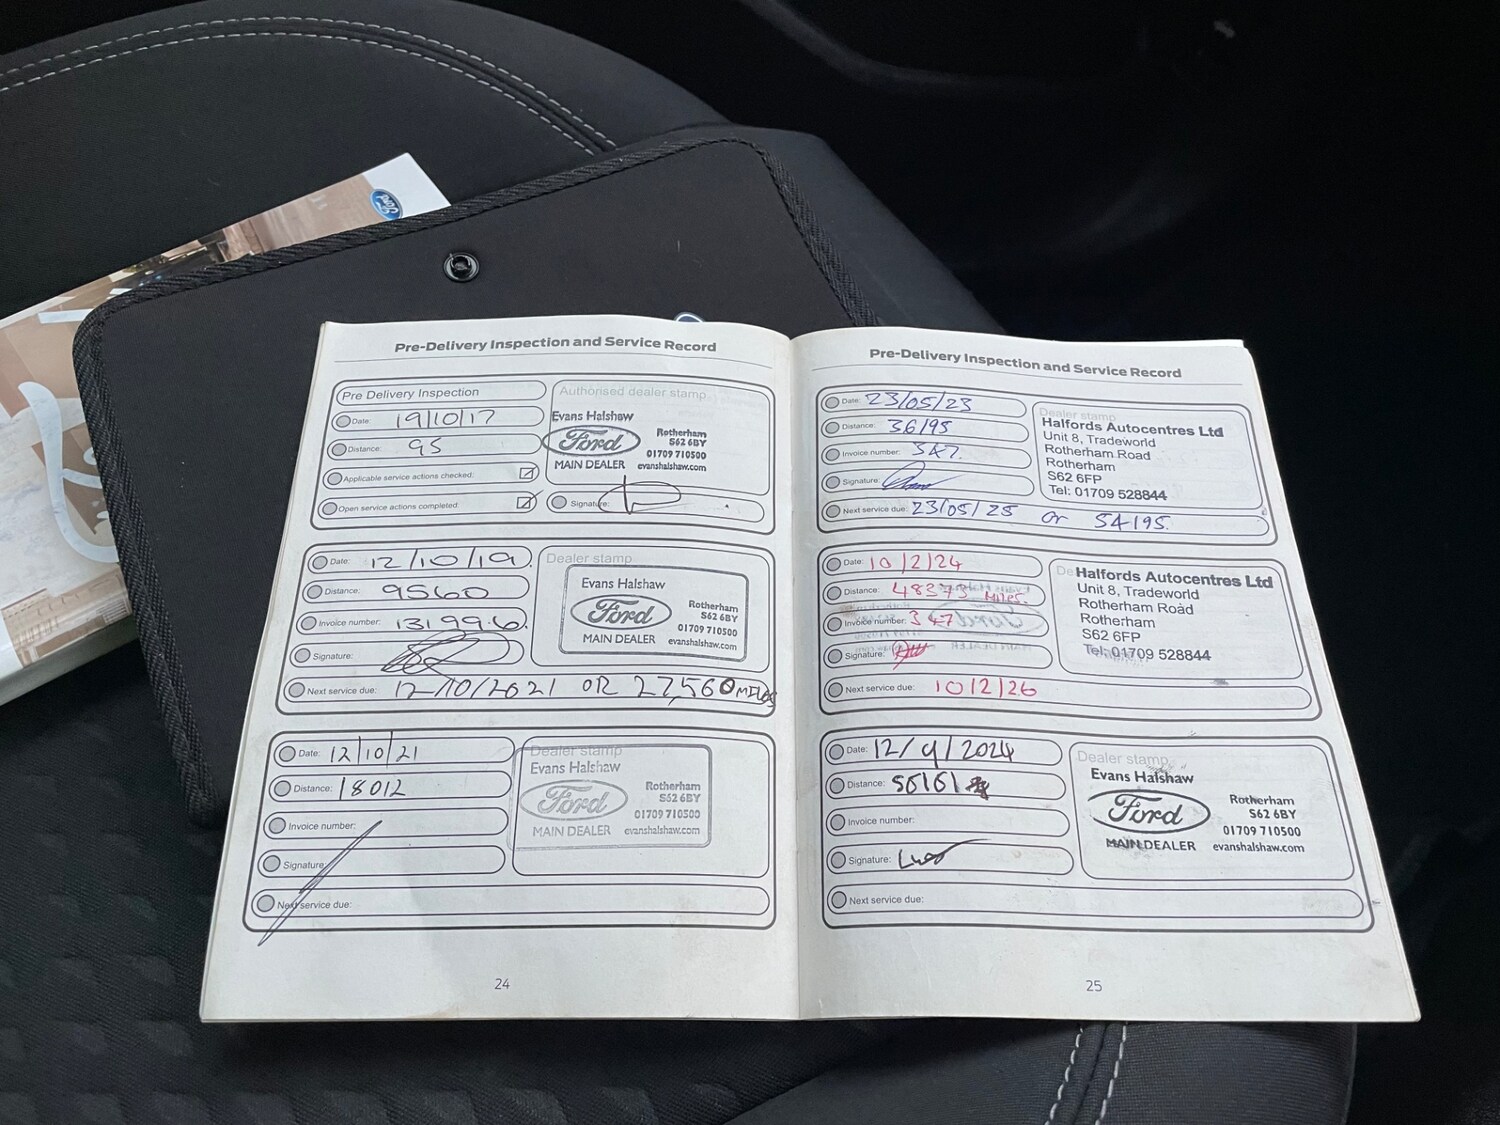 Ford
Pre-Delivery Inspection and Service Record
Pre Delivery Inspection
Date: 19/10/17
Distance: 95
Applicable service actions checked:
Open service actions completed
Authorised dealer stamp
Evans Halshaw
Ford
MAIN DEALER
Rotherham
S62 6BY
01709 710500
evanshalshaw.com
Signature:
Date: 12/10/19
Distance: 9560
Invoice number: 131996
Signature:
Next service due: 12/10/2021 OR 27,560 MILES
Dealer stamp
Evans Halshaw
Ford
MAIN DEALER
Rotherham
S62 6BY
01709 710500
evanshalshaw.com
Date: 12/10/21
Distance: 18012
Invoice number:
Signature:
Next service due:
Dealer stamp
Evans Halshaw
Ford
MAIN DEALER
Rotherham
S62 6BY
01709 710500
evanshalshaw.com
24
Pre-Delivery Inspection and Service Record
Date: 23/05/23
Distance: 36195
Invoice number: 347.
Signature:
Next service due: 23/05/25 or 54195.
Dealer stamp
Halfords Autocentres Ltd
Unit 8, Tradeworld
Rotherham Road
Rotherham
S62 6FP
Tel: 01709 528844
Date: 10/2/24
Distance: 48373 MILES.
Invoice number: 347
Signature:
Next service due: 10/2/26
De
Halfords Autocentres Ltd
Unit 8, Tradeworld
Rotherham Road
Rotherham
S62 6FP
Tel: 01709 528844
Date: 12/9/2024
Distance: 56161
Invoice number:
Signature:
Next service due:
Dealer stamp
Evans Halshaw
Ford
MAIN DEALER
Rotherham
S62 6BY
01709 710500
evanshalshaw.com
25